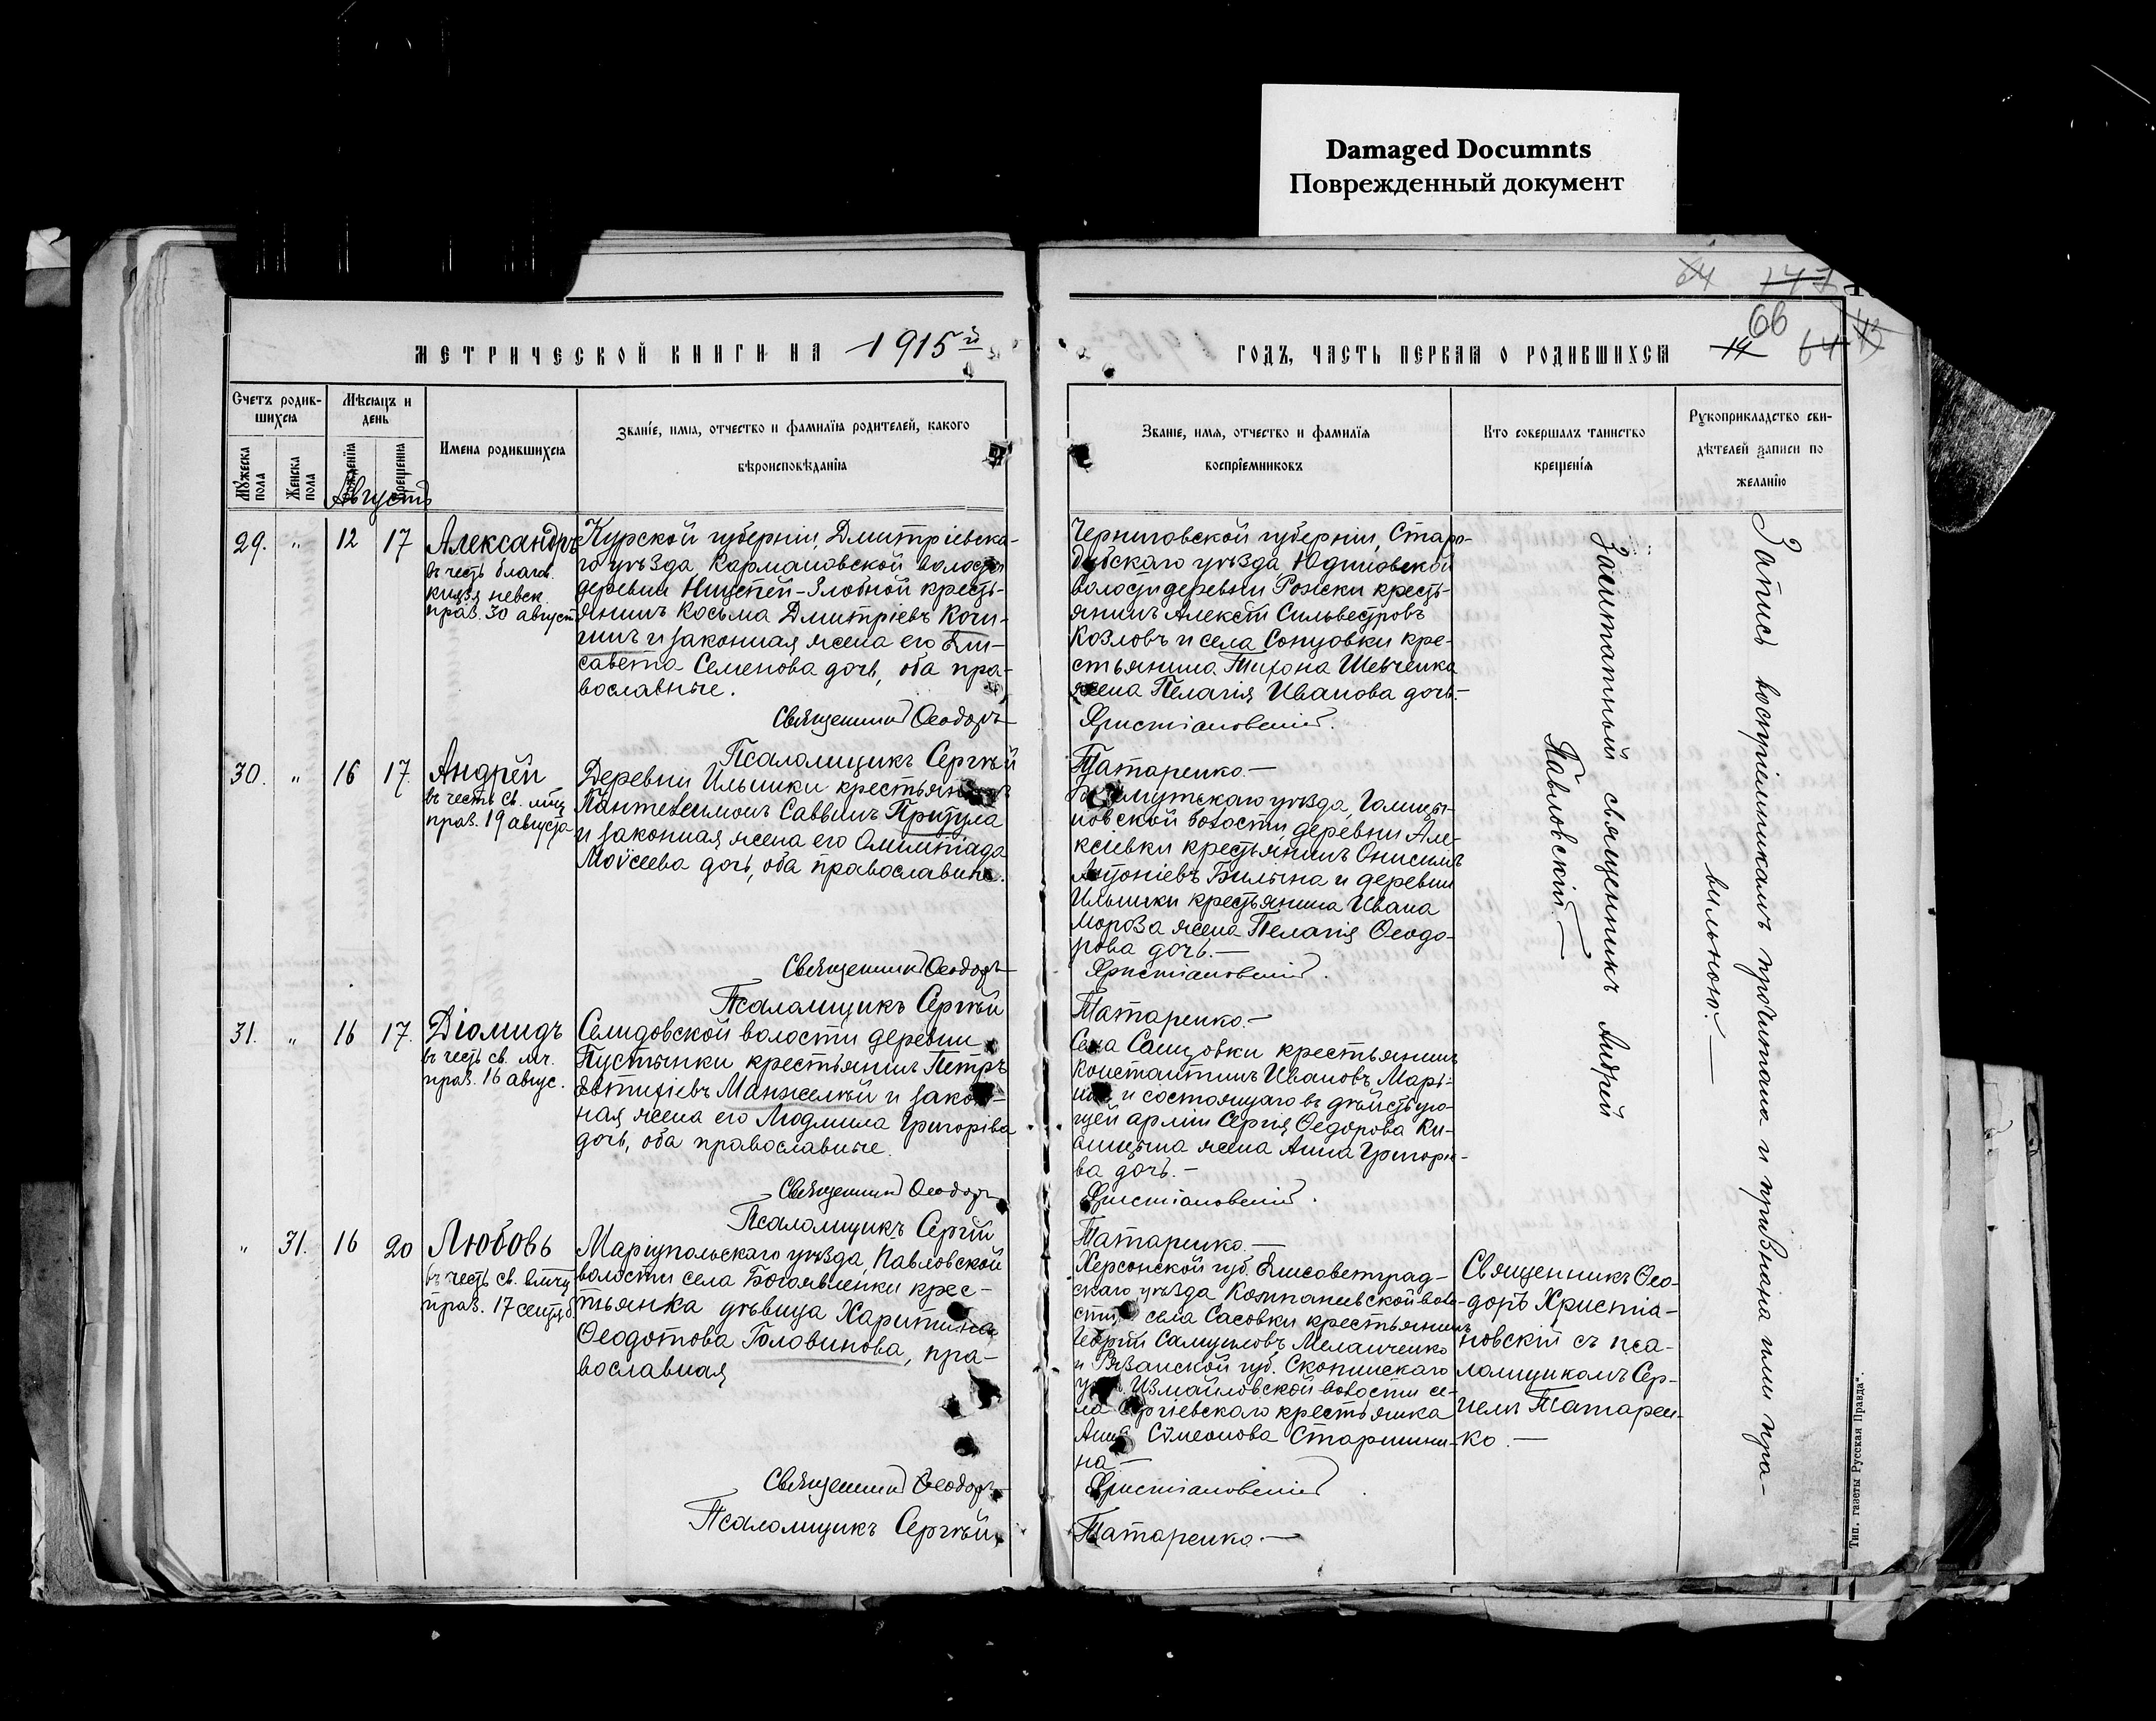 Damaged Documnts
Поврежденный документ
64 147
66
14 64
МЕТРИЧЕСКОЙ КНИГИ НА 1915й
ГОДЪ, ЧАСТЬ ПЕРВАЯ О РОДИВШИХСЯ
Счетъ родив-
шихся
Мѣсяцъ и
день
Мужеска пола
Женска пола
рожденія
крещенія
Имена родившихся
Званіе, имя, отчество и фамилія родителей, какого
вѣроисповѣданія
Званіе, имя, отчество и фамилія
воспріемниковъ
Кто совершалъ таинство
крещенія
Рукоприкладство сви-
дѣтелей записи по
желанію
Августъ
29. " 12 17 Александръ
въ честь благов.
князя невск.
праз. 30 август
Курской губерніи, Дмитріевска-
го уѣзда, Кармановской волости
деревни Злобной кресть-
янинъ Косьма Дмитріевъ Кочи-
нинъ и законная жена его Ели-
савета Семенова дочь, оба пра-
вославные.
Священникъ Ѳеодоръ
Псаломщикъ Сергѣй
Черниговской губерніи, Старо-
дубскаго уѣзда
волости деревни Рожски кресть-
янинъ Алексѣй Сильвестровъ
Козловъ и села Сонцовки кре-
стьянина Тихона Шевченка
жена Пелагія Иванова дочь.—
Христіановскій.
Татаренко.—
30. " 16 17. Андрей
въ честь св. мчц
праз. 19 августа
Деревни Ильинки крестьянинъ
Пантелеимонъ Саввинъ Притула
и законная жена его Олимпіада
Моѵсеева дочь, оба православные.
Священникъ Ѳеодоръ
Псаломщикъ Сергѣй
Бахмутскаго уѣзда, Голицы-
новской волости, деревни Але-
ксѣевки крестьянинъ Онисимъ
Антоніевъ Билына и деревни
Ильинки крестьянина Ивана
Мороза жена Пелагія Ѳеодо-
рова дочь.—
Христіановскій.
Татаренко.—
31. " 16 17. Діомидъ
въ честь св. мч.
праз. 16 авгус.
Селидовской волости деревни
Пустынки крестьянинъ Петръ
Евтихіевъ Манжелѣй и закон-
ная жена его Людмила Григоріва
дочь, оба православные.
Священникъ Ѳеодоръ
Псаломщикъ Сергій
Села Сонцовки крестьянинъ
Константинъ Ивановъ Марь-
и состоящаго въ дѣйствую-
щей арміи Сергія Ѳеодорова Ки-
лицына жена Анна Григорье-
ва дочь.—
Христіановскій.
Татаренко.—
Заштатный священникъ Андрей
Павловскій.—
" 31. 16 20 Любовь
въ честь св. вмчц
праз. 17 сентяб.
Маріупольскаго уѣзда, Павловской
волости села Богоявленки крес-
тьянка дѣвица Харитина
Ѳеодотова Головинова, пра-
вославная
Священникъ Ѳеодоръ
Псаломщикъ Сергѣй
Херсонской губ. Елисаветград-
скаго уѣзда Компанеевской воло-
сти села Сасовки крестьянинъ
Георгій Самуиловъ Меланченко
и Рязанской губ. Скопинскаго
уѣз. Измайловской волости се-
ла Сергіевскаго крестьянка
Анна Сѵмеонова Старшини-
на—
Христіановскій
Татаренко.—
Священникъ Ѳео-
доръ Христіа-
новскій съ пса-
ломщикомъ Сер-
гіемъ Татарен-
ко.—
Запись воспріемникамъ прочитана и признана ими пра-
вильною.—
Тип. газеты Русская Правда".